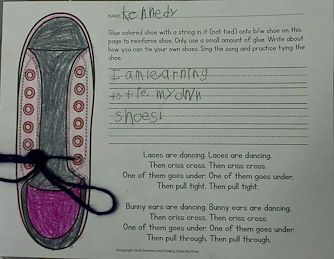 NAME: Kennedy
Glue colored shoe with a string in it (not tied) onto b/w shoe on this
page to reinforce shoe. Only use a small amount of glue. Write about
how you can tie your own shoes. Sing the song and practice tying the
shoe.
I am learning
to tie my own
shoes!
Laces are dancing. Laces are dancing.
Then criss cross. Then criss cross.
One of them goes under. One of them goes under.
Then pull tight. Then pull tight.
Bunny ears are dancing. Bunny ears are dancing.
Then criss cross. Then criss cross.
One of them goes under. One of them goes under.
Then pull through. Then pull through.